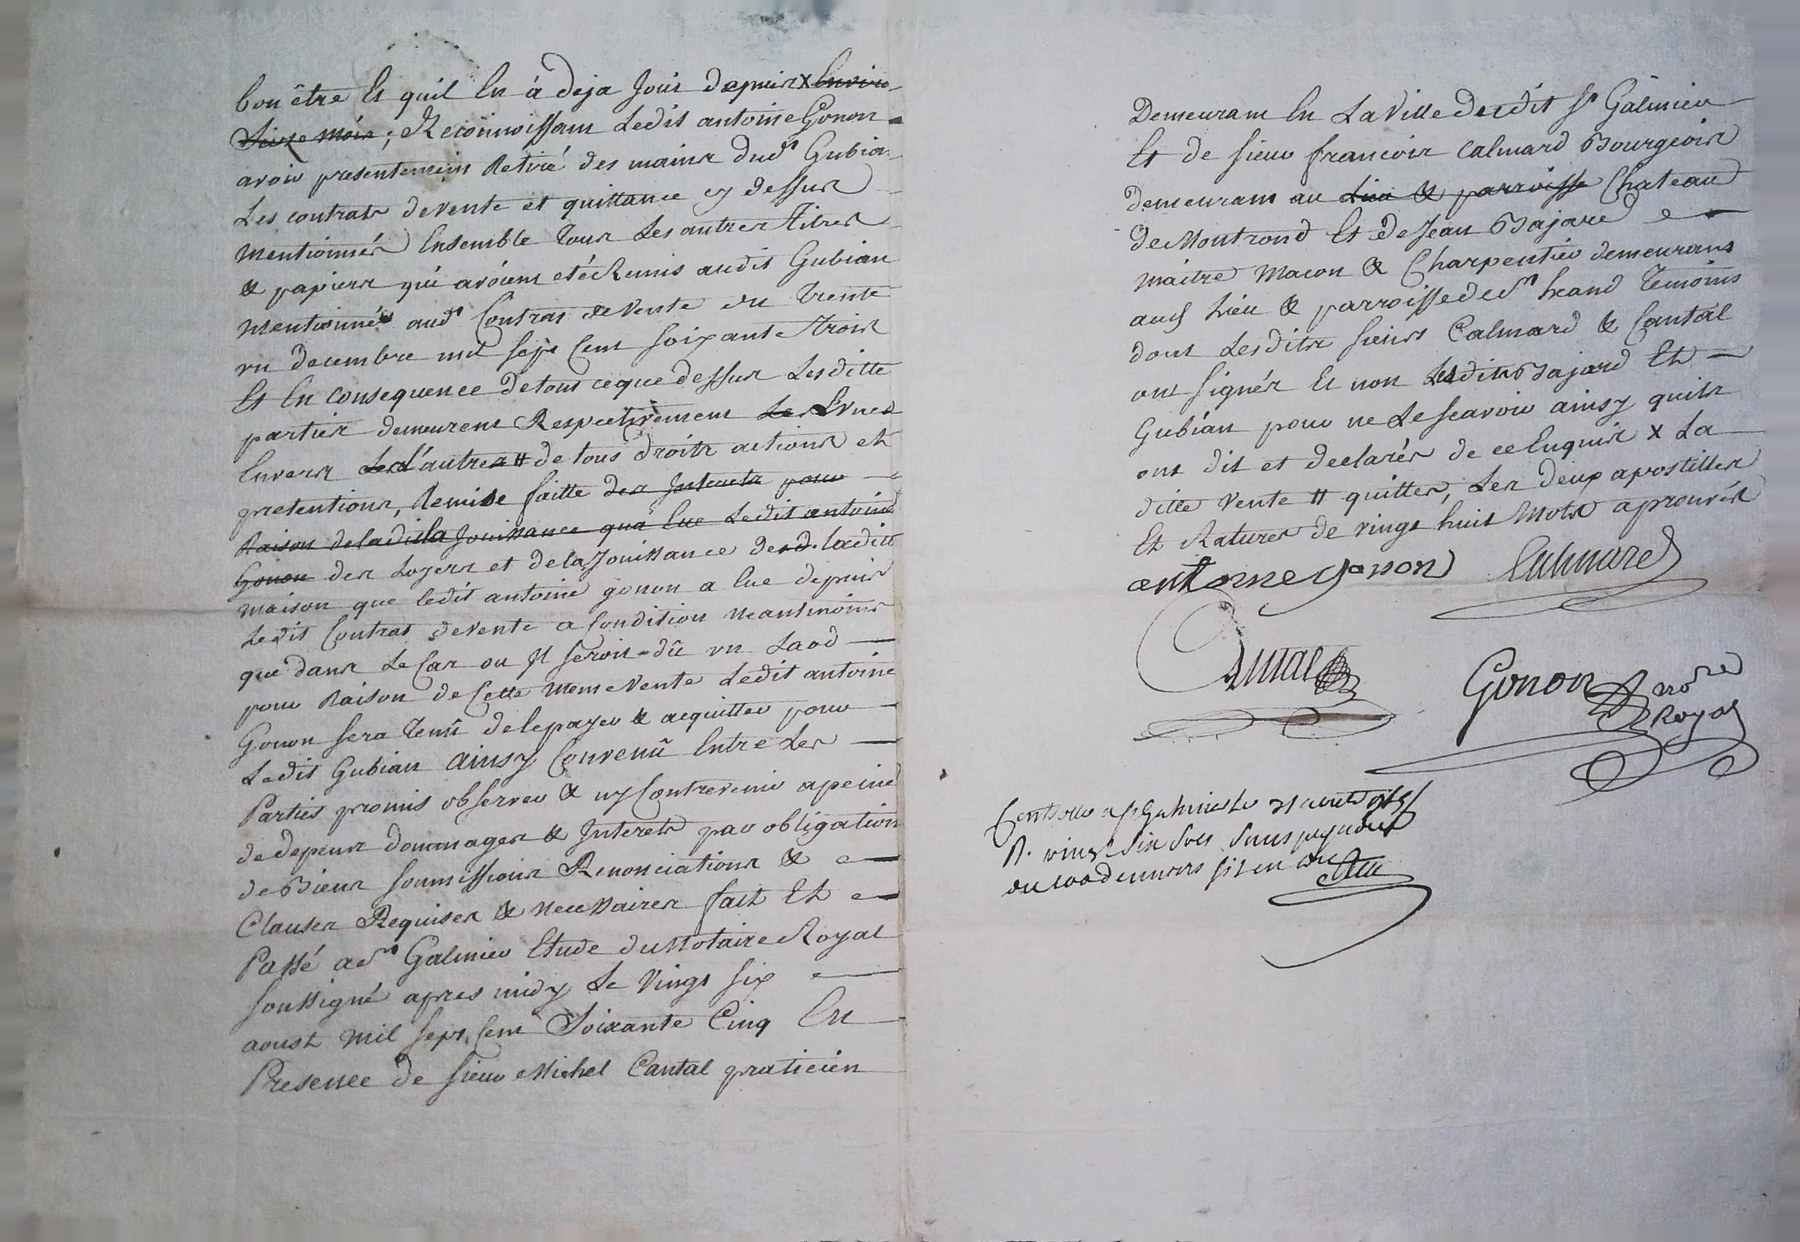 bon être Et quil En à deja Joüi depuis x Environ
Seize mois ; Reconnoissant Ledit antoine Gonon
avoir presentement Retiré des mains dud.t Gubian
Les contrats de vente et quittance cy dessus
mentionnés Ensemble Tous Les autres Titres
& papiers qui avoient été Remis audit Gubian
mentionnés aud.t Contrat de vente du Trente
un decembre mil sept Cent soixante Trois
Et En consequence de tout ce que dessus Lesditte
parties demeurent Respectivement Les Unes
Envers Les L'autres # de tous droits actions et
pretentions, Remise faitte des Interets pour
Raison de laditte Jouissance qua Eue Ledit antoine
Gonon des Loyers et de la Jouissance de laditte
maison que ledit antoine gonon a Eue depuis
Ledit Contrat de vente a Condition neantmoins
que dans Le Cas ou Il seroit dû un Laod
pour Raison de Cette meme vente Ledit antoine
Gonon sera Tenû de le payer & acquitter pour
Ledit Gubian ainsy Convenû Entre Les
Parties promis observer & ny Contrevenir a peine
de depens dommages & Interets par obligation
de Biens soumissions Renonciations &
Clauses Requises & necessaires fait Et
Passé a S.t Galmier Etude du Notaire Royal
soussigné apres midy Le vingt six
aoust mil sept Cent Soixante Cinq En
Presence de sieur Michel Cantal praticien
Demeurant En La Ville dudit S.t Galmier
Et de sieur francois Calmard Bourgeois
demeurant au Lieu & parroisse Chateau
de Montrond Et de Jean Bajard
maitre Macon & Charpentier demeurans
aud Lieu & parroisse de S.t Temoins
dont Lesdits sieurs Calmard & Cantal
ont signés Et non Lesdits Bajard Et
Gubian pour ne Le scavoir ainsy quils
ont dit et declarés de ce Enquis x La
ditte vente # quittes, Les deux apostilles
Et Ratures de vingt huit Mots aprouvés
antoine gonon Calmard
Cantal
Gonon no.re
Royal
Controllé a S.t Galmier Le 31 aoust 1765
R. vingt six sols